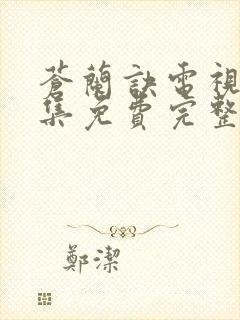 蒼蘭訣電視
集免費完整
鄭潔